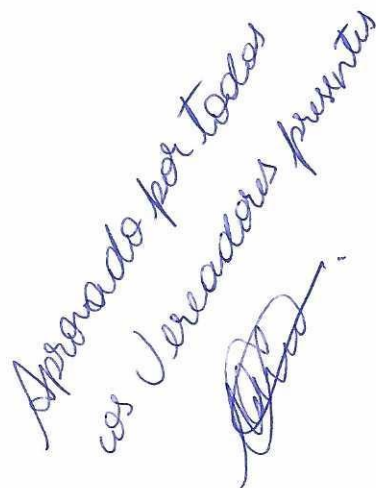 Aprovado por todos
os Vereadores presentes